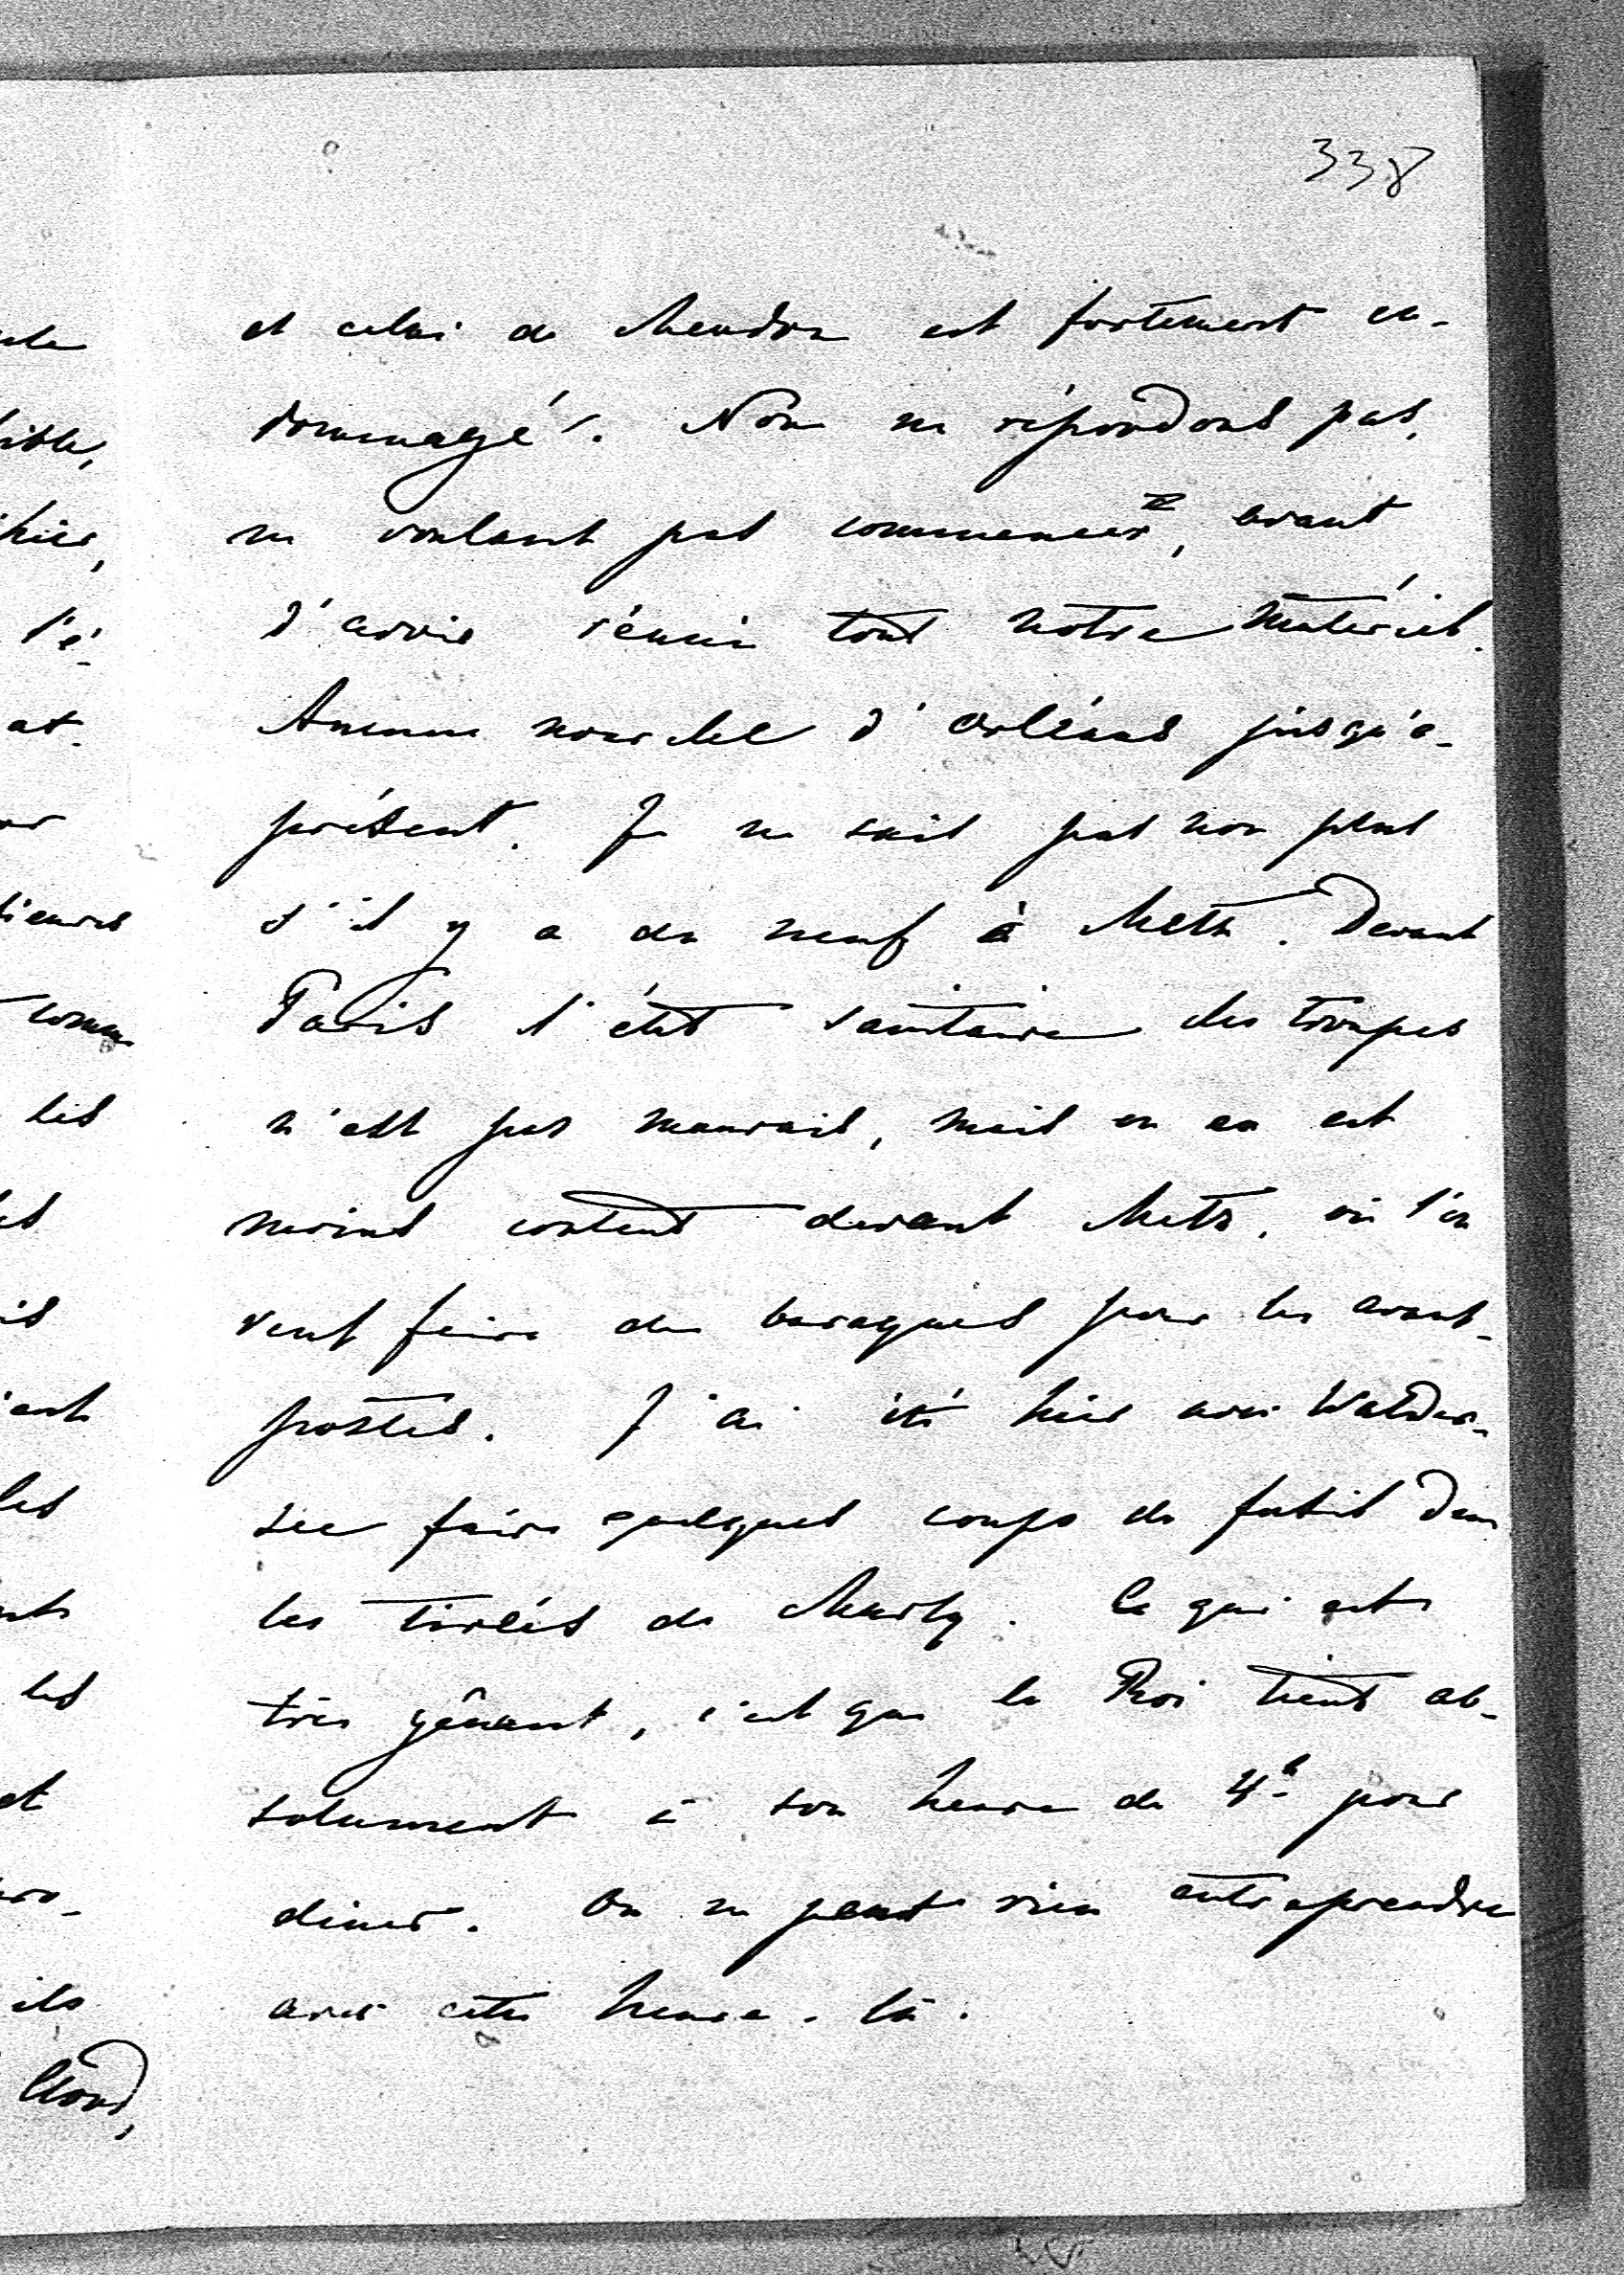 338
et celui de Meudon est fortement en-
dommagé. Nous ne répondons pas,
ne voulant pas commencer, avant
d'avoir réuni tout notre matériel.
Aucune nouvelle d'Orléans jusqu'à-
présent. Je ne sais pas non plus
s'il y a du neuf à Metz. Devant
Paris l'état sanitaire des troupes
n'est pas mauvais, mais on en est
moins content devant Metz, où l'on
veut faire des baraques pour les avant-
postes. J'ai été hier avec Walder-
see faire quelques coups de fusil dans
les tirés de Marly. Ce qui est
très gênant, c'est que le Roi tient ab-
solument à son heure de 4h pour
diner. On ne peut rien entreprendre
avec cette heure-là.
ible,
hier,
l'é-
at-
comme
les
les
les
et
ils